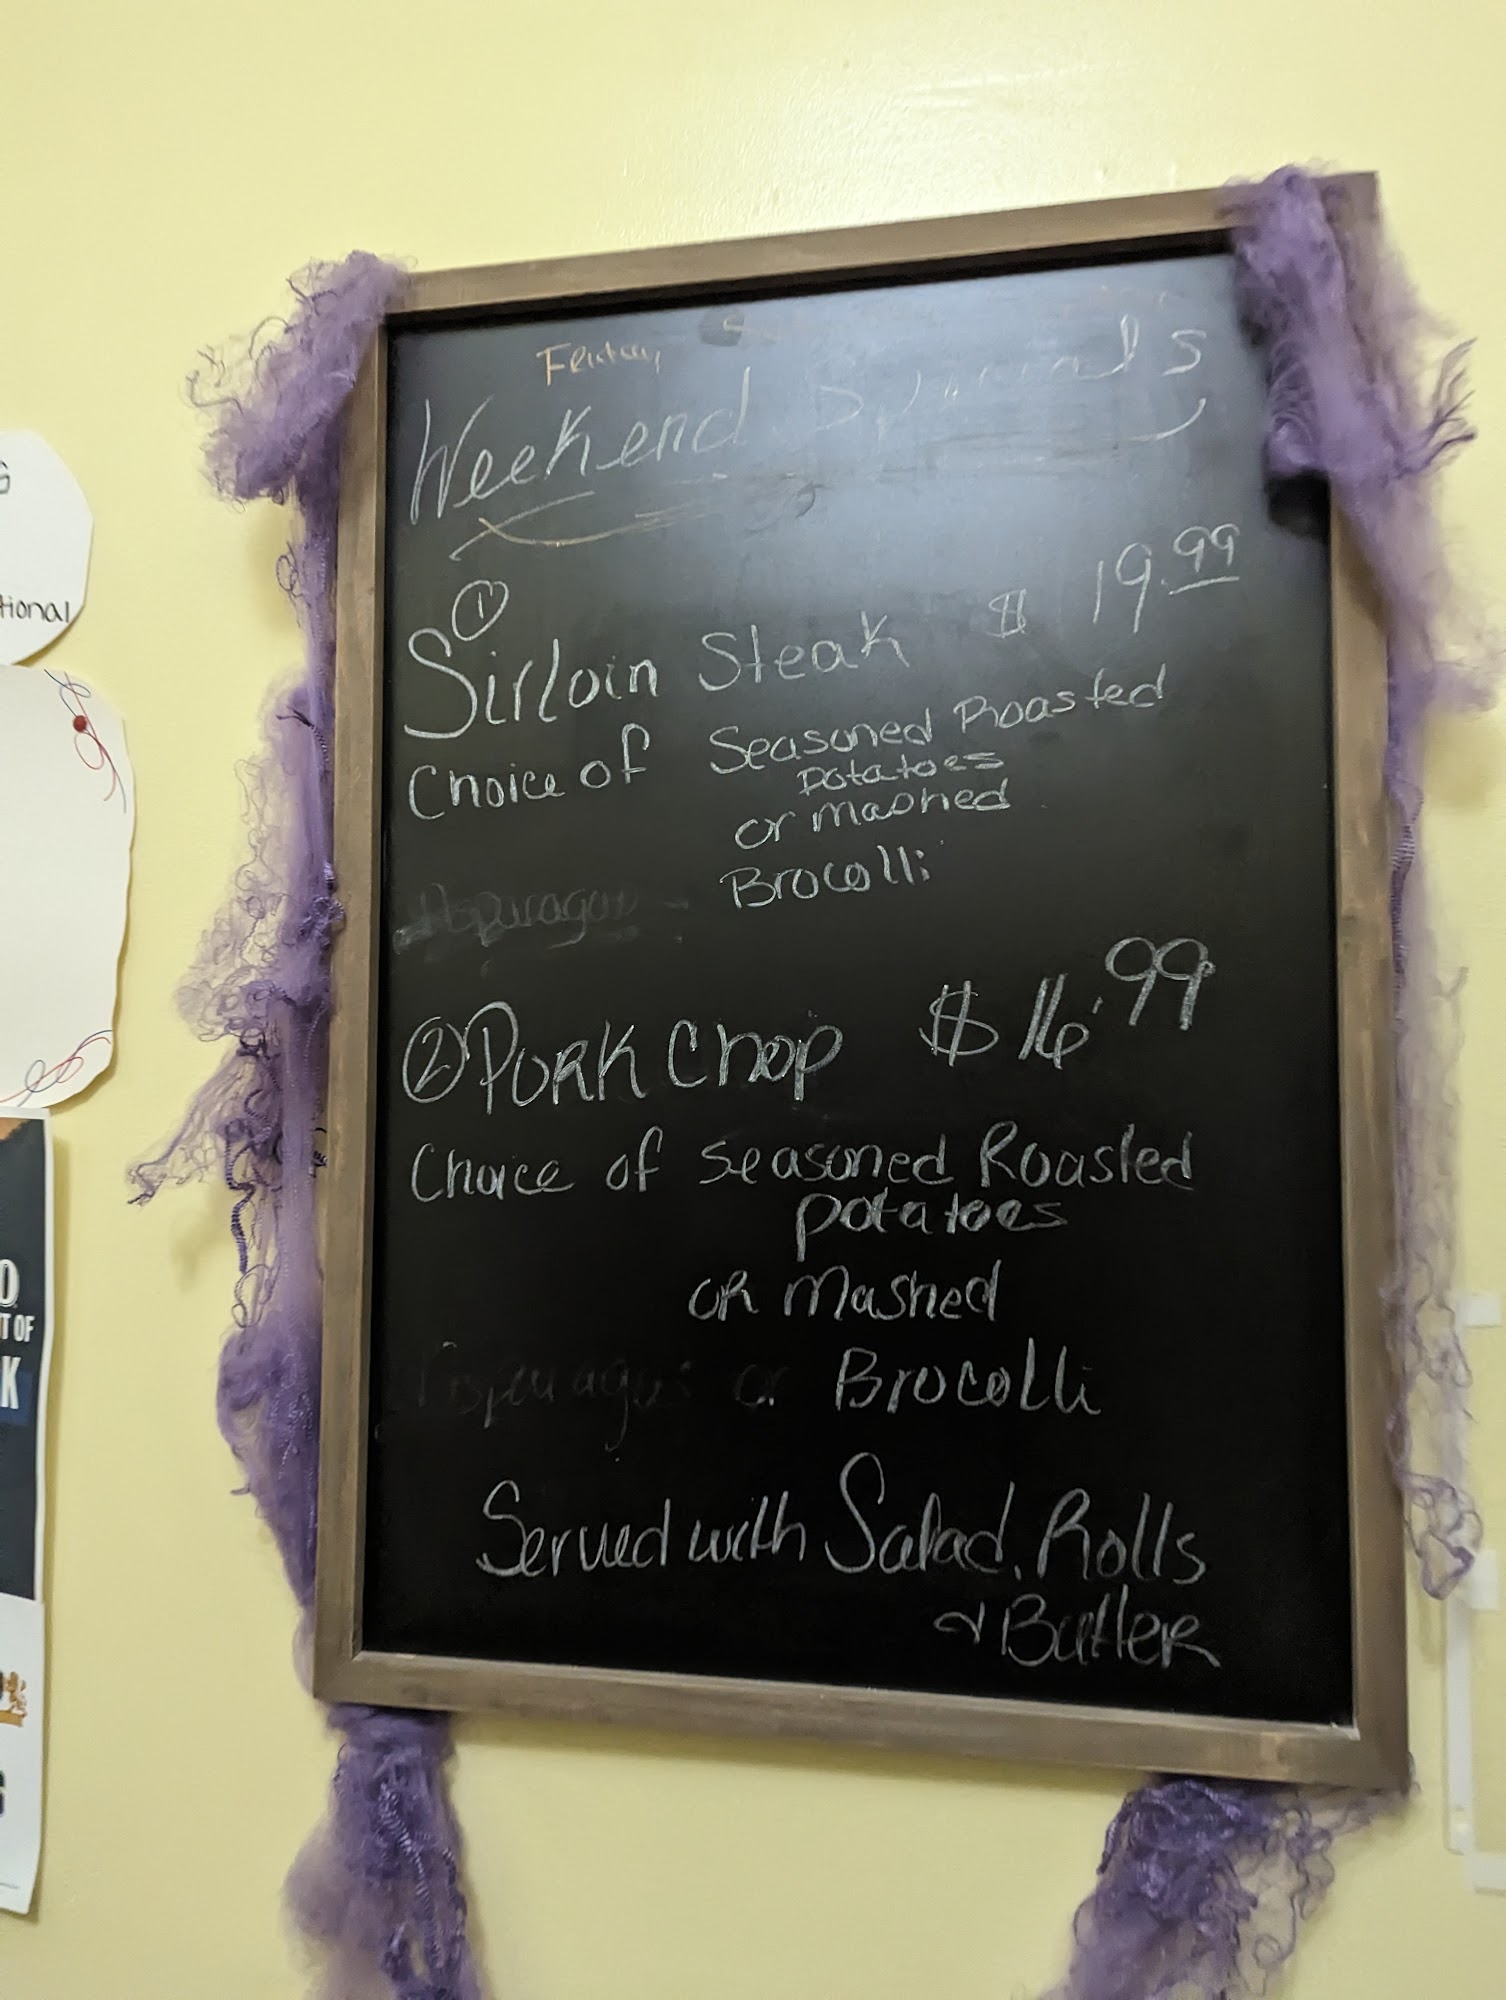 Weekend Specials
①
Sirloin Steak $ 19.99
Choice of Seasoned Roasted
potatoes
or mashed
Asparagus
Brocolli
② PORK Chop $ 16.99
Choice of Seasoned Roasted
potatoes
OR Mashed
Asparagus or Brocolli
Served with Salad, Rolls
& Butter
G
tional
O
T OF
K